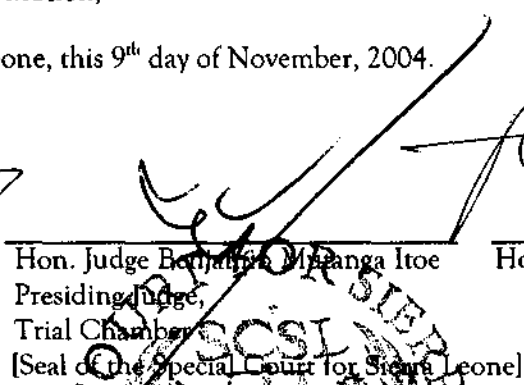 one, this 9th day of November, 2004.
Hon. Judge Benjamin Mutanga Itoe Ho
Presiding Judge,
Trial Chamber
[Seal of the Special Court for Sierra Leone]
COURT FOR SIER
SCSL